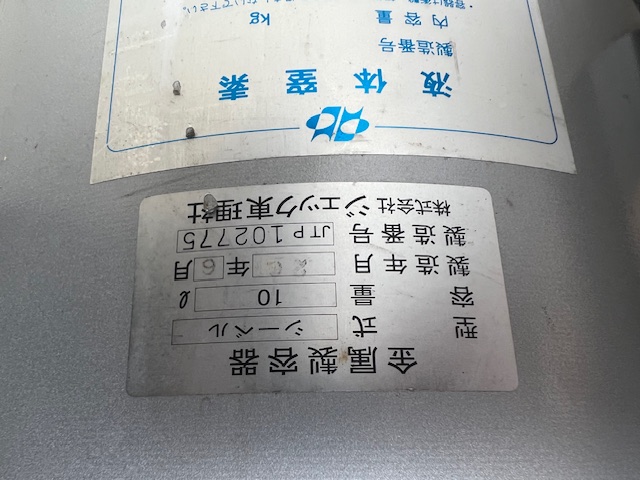 金属製容器
型式 シーベル
容量 10 ℓ
製造年月 年 6 月
製造番号 JTP102775
株式会社 ジェック東理社
液体窒素
製造番号
内容量 kg